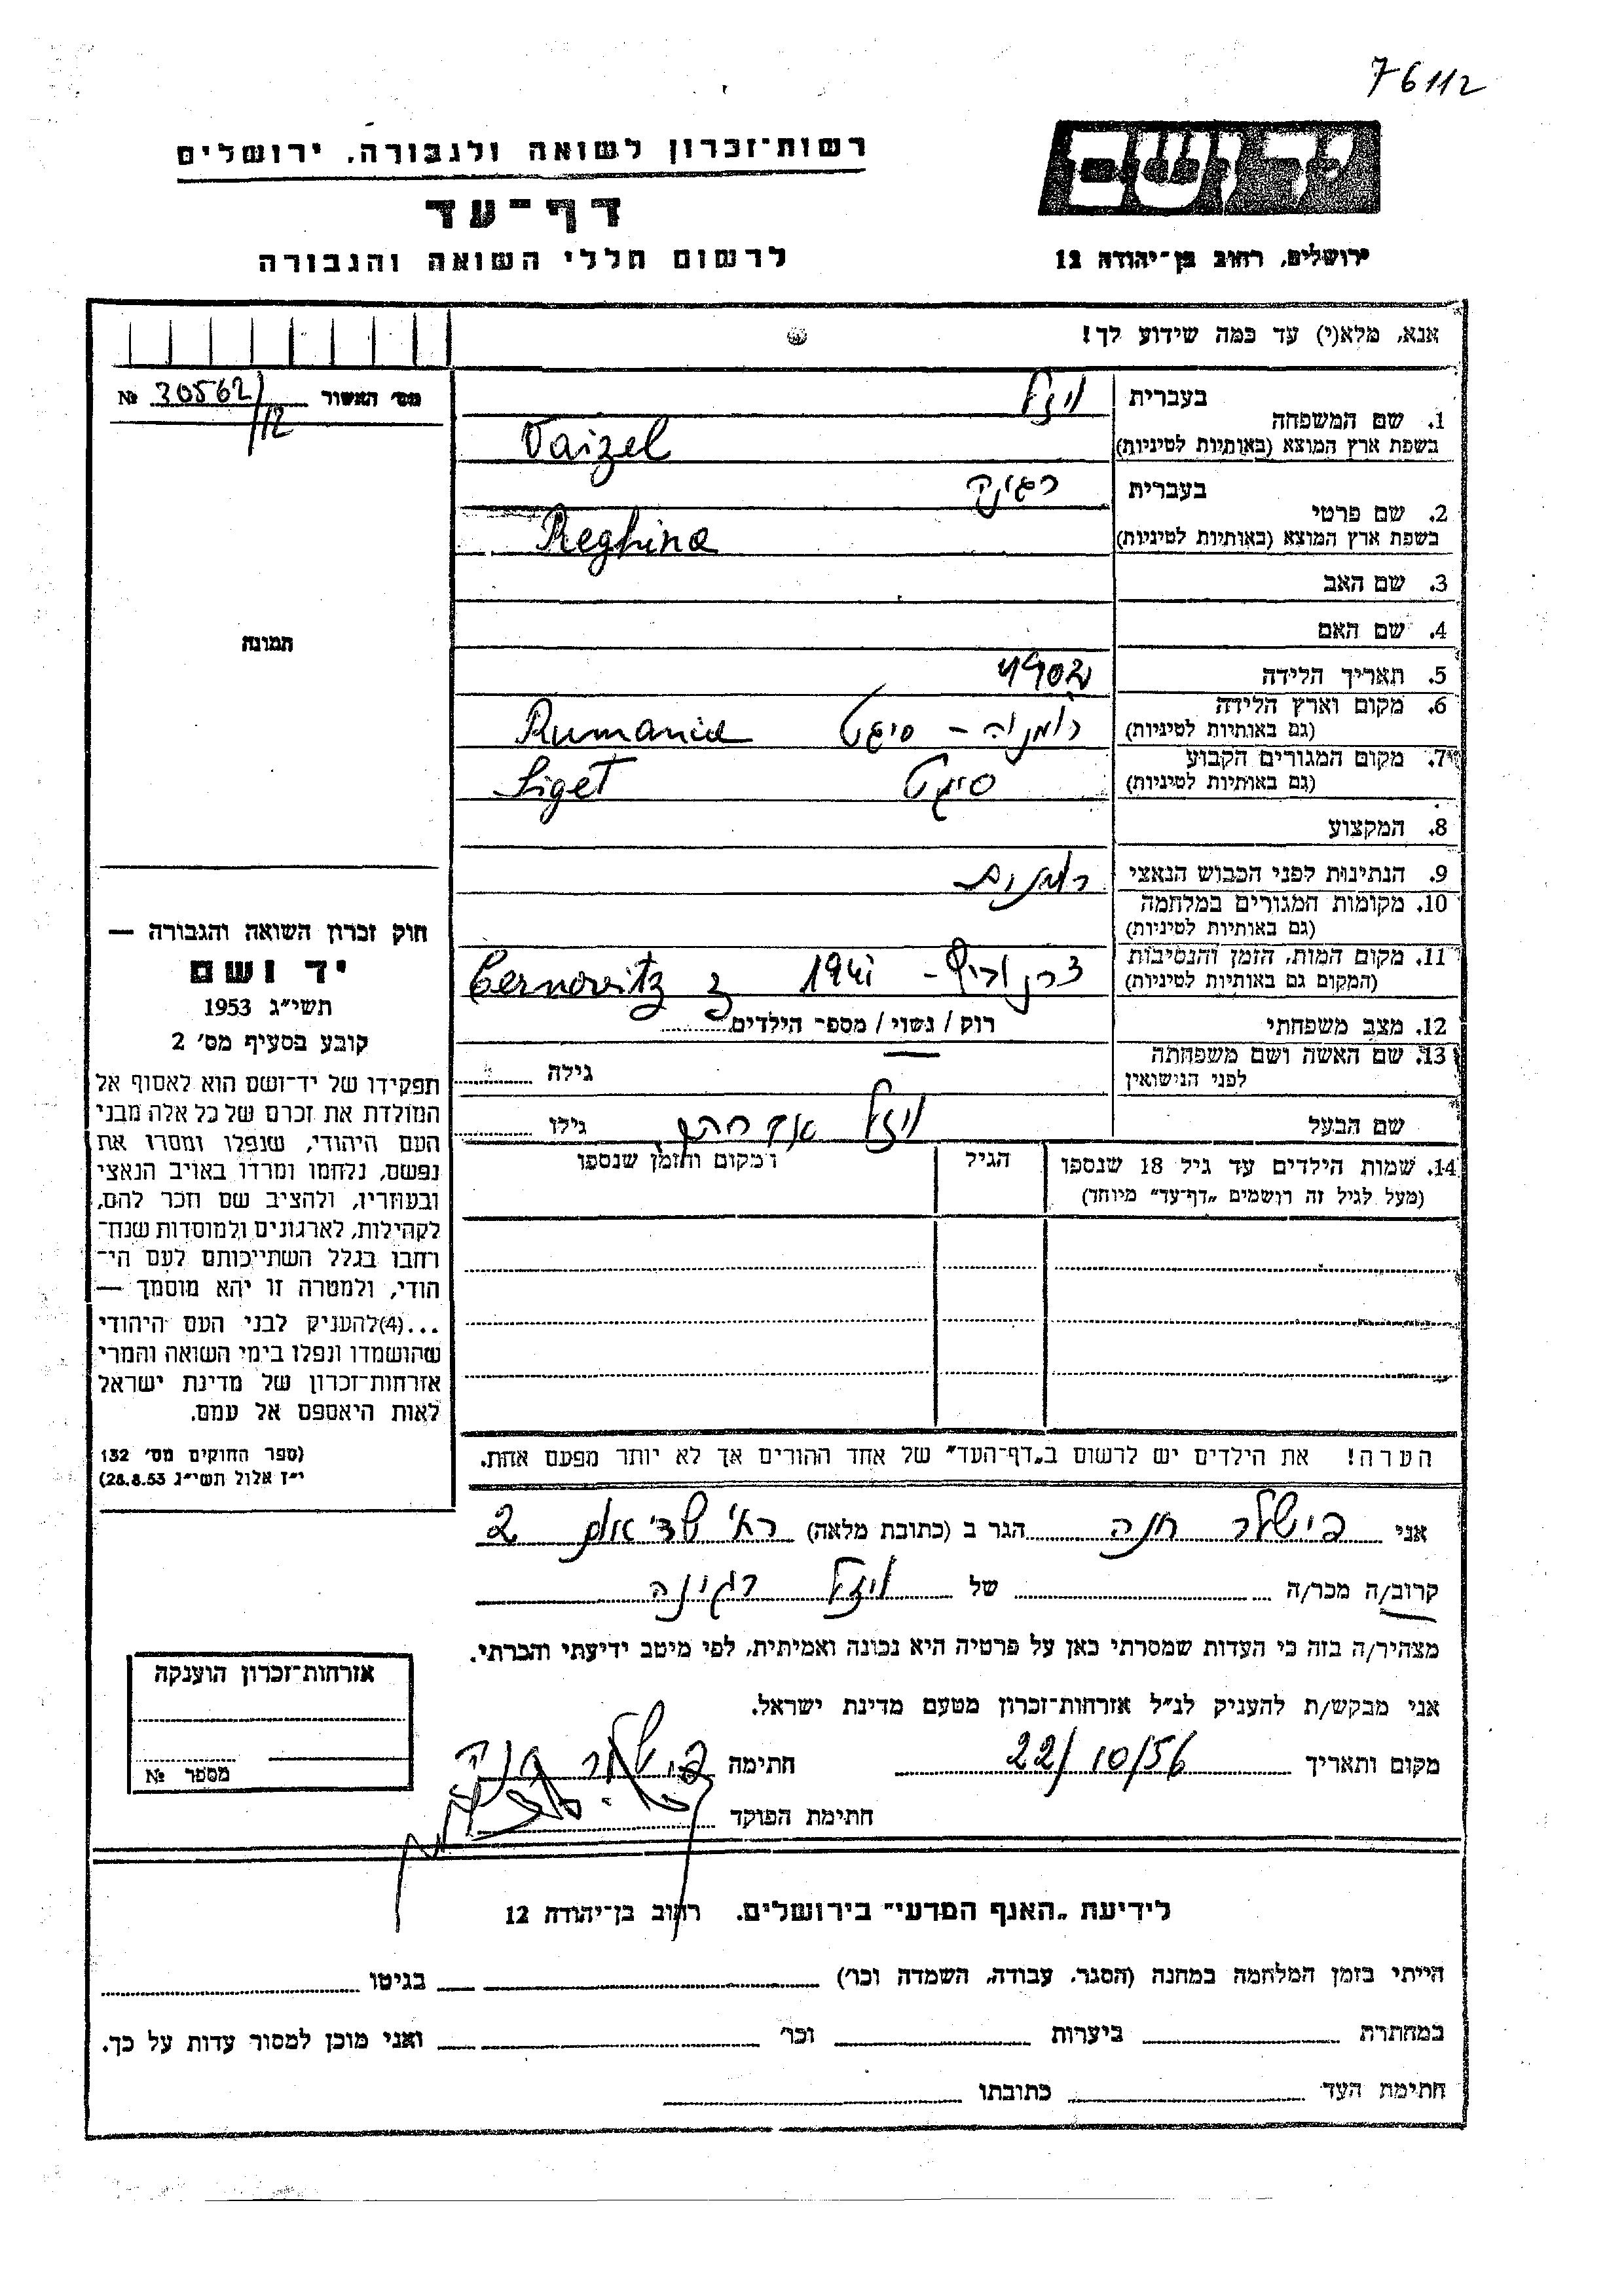 76112
יד ושם
רשות־זכרון לשואה ולגבורה, ירושלים
דף־עד
לרשום חללי השואה והגבורה
ירושלים, רחוב בן־יהודה 12
אנא, מלא(י) עד כמה שידוע לך!
מס׳ האשור № 30562/12
תמונה
בעברית ויזל
1. שם המשפחה
בשפת ארץ המוצא (באותיות לטיניות) Vaizel
בעברית רגינה
2. שם פרטי
בשפת ארץ המוצא (באותיות לטיניות) Reghina
3. שם האב
4. שם האם
5. תאריך הלידה 1902
6. מקום וארץ הלידה
(גם באותיות לטיניות) רומניה - סיגט Rumania
7. מקום המגורים הקבוע
(גם באותיות לטיניות) סיגט Siget
8. המקצוע
9. הנתינות לפני הכבוש הנאצי רומנית
10. מקומות המגורים במלחמה
(גם באותיות לטיניות)
11. מקום המות, הזמן והנסיבות
(המקום גם באותיות לטיניות) 1941 Cernovitz
12. מצב משפחתי רוק / נשוי / מספר הילדים
13. שם האשה ושם משפחתה
לפני הנישואין גילה
שם הבעל ויזל אברהם גילו
14. שמות הילדים עד גיל 18 שנספו הגיל ומקום והזמן שנספו
(מעל לגיל זה רושמים „דף־עד״ מיוחד)
הערה! את הילדים יש לרשום ב„דף־העד״ של אחד ההורים אך לא יותר מפעם אחת.
חוק זכרון השואה והגבורה —
יד ושם
תשי״ג 1953
קובע בסעיף מס׳ 2
תפקידו של יד־ושם הוא לאסוף אל
המולדת את זכרם של כל אלה מבני
העם היהודי, שנפלו ומסרו את
נפשם, נלחמו ומרדו באויב הנאצי
ובעוזריו, ולהציב שם וזכר להם,
לקהילות, לארגונים ולמוסדות שנח־
רחבו בגלל השתייכותם לעם הי־
הודי, ולמטרה זו יהא מוסמך —
...(4)להעניק לבני העם היהודי
שהושמדו ונפלו בימי השואה והמרי
אזרחות־זכרון של מדינת ישראל
לאות היאספם אל עמם.
(ספר החוקים מס׳ 132
י״ז אלול תשי״ג 28.8.53)
אני פישלר חנה הגר ב (כתובת מלאה) 2
קרוב/ה מכר/ה של ויזל רגינה
מצהיר/ה בזה כי העדות שמסרתי כאן על פרטיה היא נכונה ואמיתית, לפי מיטב ידיעתי והכרתי.
אני מבקש/ת להעניק לנ״ל אזרחות־זכרון מטעם מדינת ישראל.
מקום ותאריך 22/10/56 חתימה פישלר חנה
חתימת הפוקד
אזרחות־זכרון הוענקה
מספר №
לידיעת „האגף המדעי״ בירושלים, רחוב בן־יהודה 12
הייתי בזמן המלחמה במחנה (הסגר, עבודה, השמדה וכו׳) בגיטו
במחתרת ביערות וכו׳ ואני מוכן למסור עדות על כך.
חתימת העד כתובתו